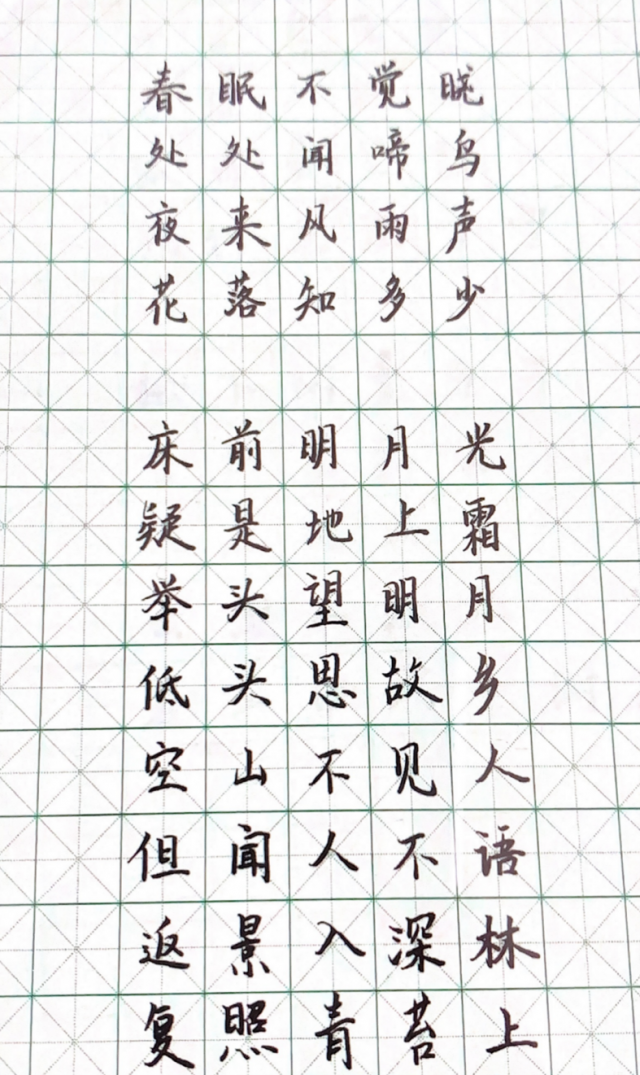 春眠不觉晓
处处闻啼鸟
夜来风雨声
花落知多少
床前明月光
疑是地上霜
举头望明月
低头思故乡
空山不见人
但闻人不语
返景入深林
复照青苔上